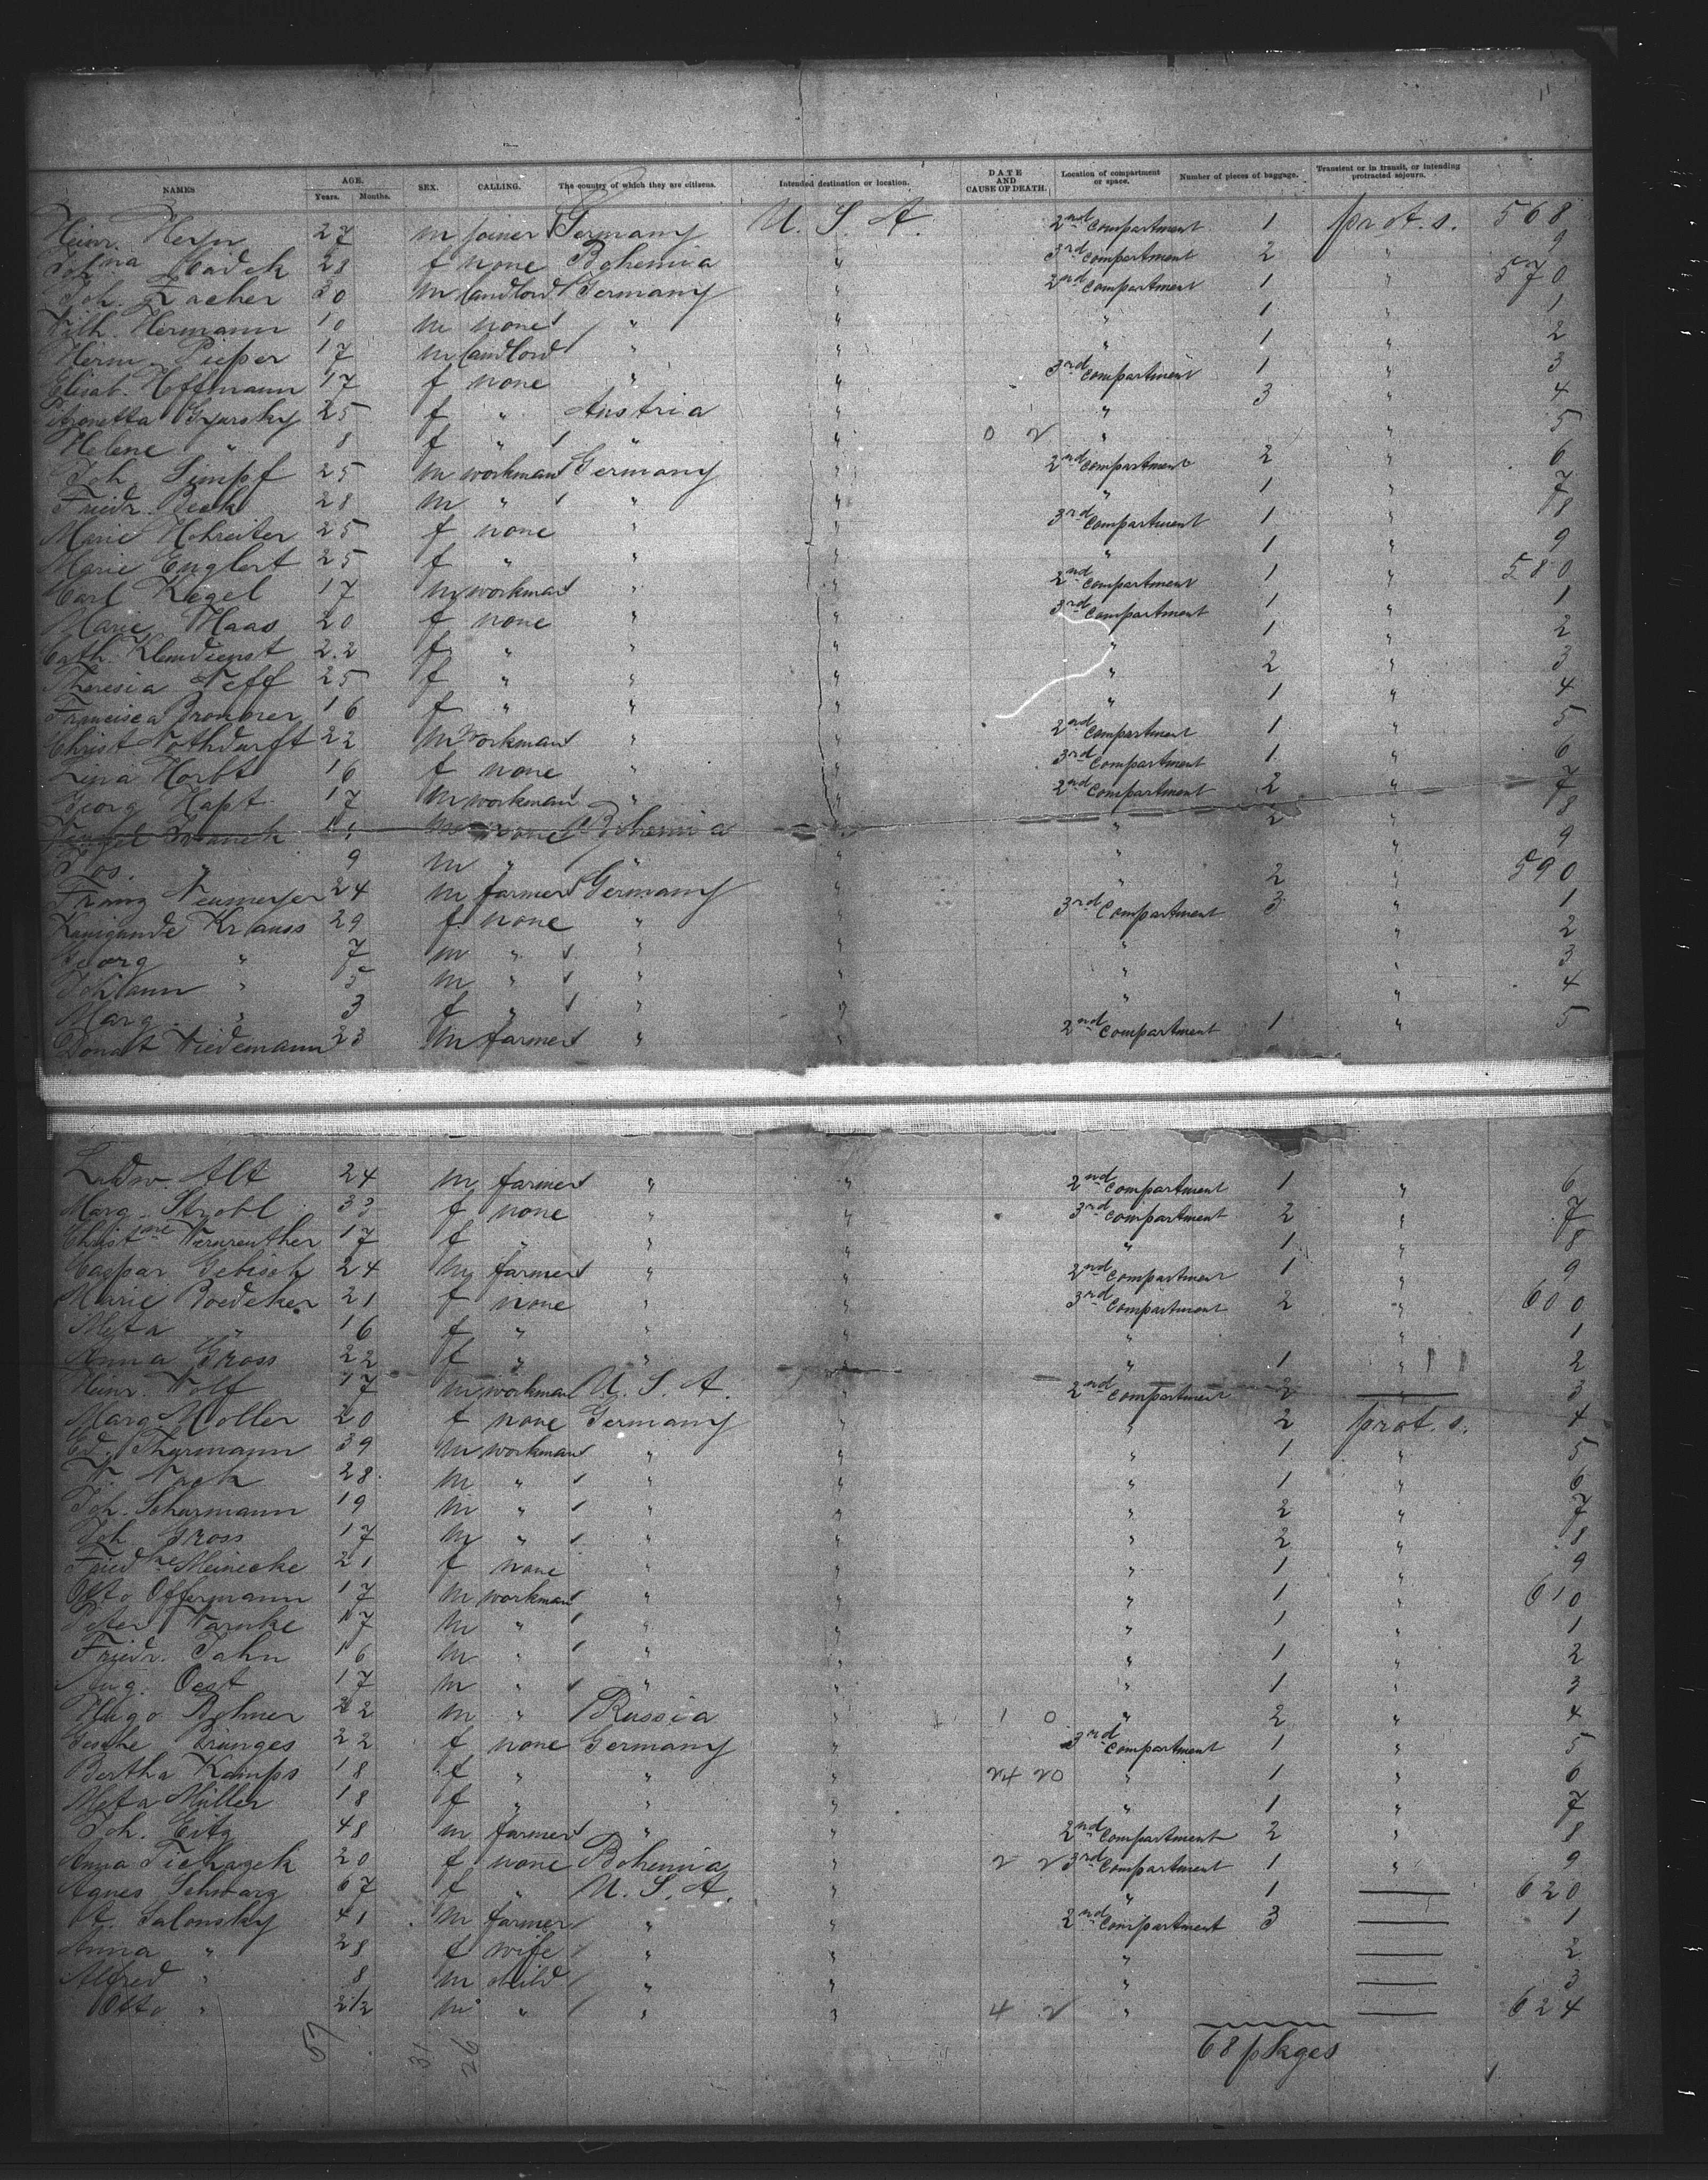 NAMES AGE. Years. Months. SEX. CALLING. The country of which they are citizens. Intended destination or location. DATE AND CAUSE OF DEATH. Location of compartment or space. Number of pieces of baggage. Transient or in transit, or intending protracted sojourn.
Heinr. Heyn 27 m joiner Germany U. S. A. 2nd compartment 1 prot. s. 568
28 f none Bohemia " 3rd compartment 2 " 9
Joh. Zacher 30 m landlord Germany " 2nd compartment 1 " 570
Wilh. Hermann 10 m none " " " 1 " 1
Herm. Pieper 17 m landlord " " " 1 " 2
Elisab. Hoffmann 17 f none " " 3rd compartment 1 " 3
25 f " Austria " " 3 " 4
Helene " 8 f " " " 0 2 " " 5
Joh. Limpf 25 m workman Germany " 2nd compartment 2 " 6
Friedr. Beck 28 m " " " " 1 " 7
Marie Hohreiter 25 f none " " 3rd compartment 1 " 8
Marie Englert 25 f " " " " 1 " 9
Carl Kegel 17 m workman " " 2nd compartment 1 " 580
Marie Haas 20 f none " " 3rd compartment 1 " 1
Cath. Klemdienst 22 f " " " " 1 " 2
Theresia Neff 25 f " " " " 2 " 3
Francisca Brommer 16 f " " " " 1 " 4
Christ Nothdurft 22 m workman " " 2nd compartment 1 " 5
Lina Horbt 16 f none " " 3rd compartment 1 " 6
Georg Hapt 17 m workman " " 2nd compartment 2 " 7
m none Bohemia " " 2 " 8
Jos. " 9 m " " " " " 9
Franz Neumeyer 24 m farmer Germany " " 2 " 590
Kunigunde Krauss 29 f none " " 3rd compartment 3 " 1
Georg " 7 m " " " " " 2
Johann " 5 m " " " " " 3
Marg. " 3 f " " " " " 4
Donat Wiedemann 23 m farmer " " 2nd compartment 1 " 5
Ludw. Alt 24 m farmer " " 2nd compartment 1 " 6
Marg. Strobl 33 f none " " 3rd compartment 2 " 7
Christine Wernreuther 17 f " " " " 1 " 8
Caspar Gebisch 24 m farmer " " 2nd compartment 1 " 9
Marie Boedeker 21 f none " " 3rd compartment 2 " 600
Meta " 16 f " " " " " 1
Anna Gross 22 f " " " " 1 " 2
Heinr. Wolf 17 m workman U. S. A. " 2nd compartment 2 " 3
Marg. Moller 20 f none Germany " " 2 prot. s. 4
Ed. Thurmann 39 m workman " " " 1 " 5
W. Nack 28 m " " " " 1 " 6
Joh. Schurmann 19 m " " " " 2 " 7
Joh. Gross 17 m " " " " 2 " 8
Friedke Meinecke 21 f none " " " 1 " 9
Otto Offermann 17 m workman " " " 1 " 610
Peter Warnke 17 m " " " " 1 " 1
Friedr. Jahn 16 m " " " " 1 " 2
Aug. Oest 17 m " " " " 1 " 3
Hugo Bohmer 22 m " Russia " 1 0 " 2 " 4
Gesche Brünges 22 f none Germany " 3rd compartment 1 " 5
Bertha Kamps 18 f " " " 24 20 " 1 " 6
Meta Müller 18 f " " " " 1 " 7
Joh. Eitz 48 m farmer " " 2nd compartment 2 " 8
Anna Tichazek 20 f none Bohemia " 2 2 3rd compartment 1 " 9
Agnes Schwarz 67 f " U. S. A. " " 1 — 620
A. Salonsky 41 m farmer " " 2nd compartment 3 — 1
Anna " 28 f wife " " " — 2
Alfred " 8 m child " " " — 3
Otto " 2 1/2 m " " " 4 2 " — 624
57 31 26
68 pkges